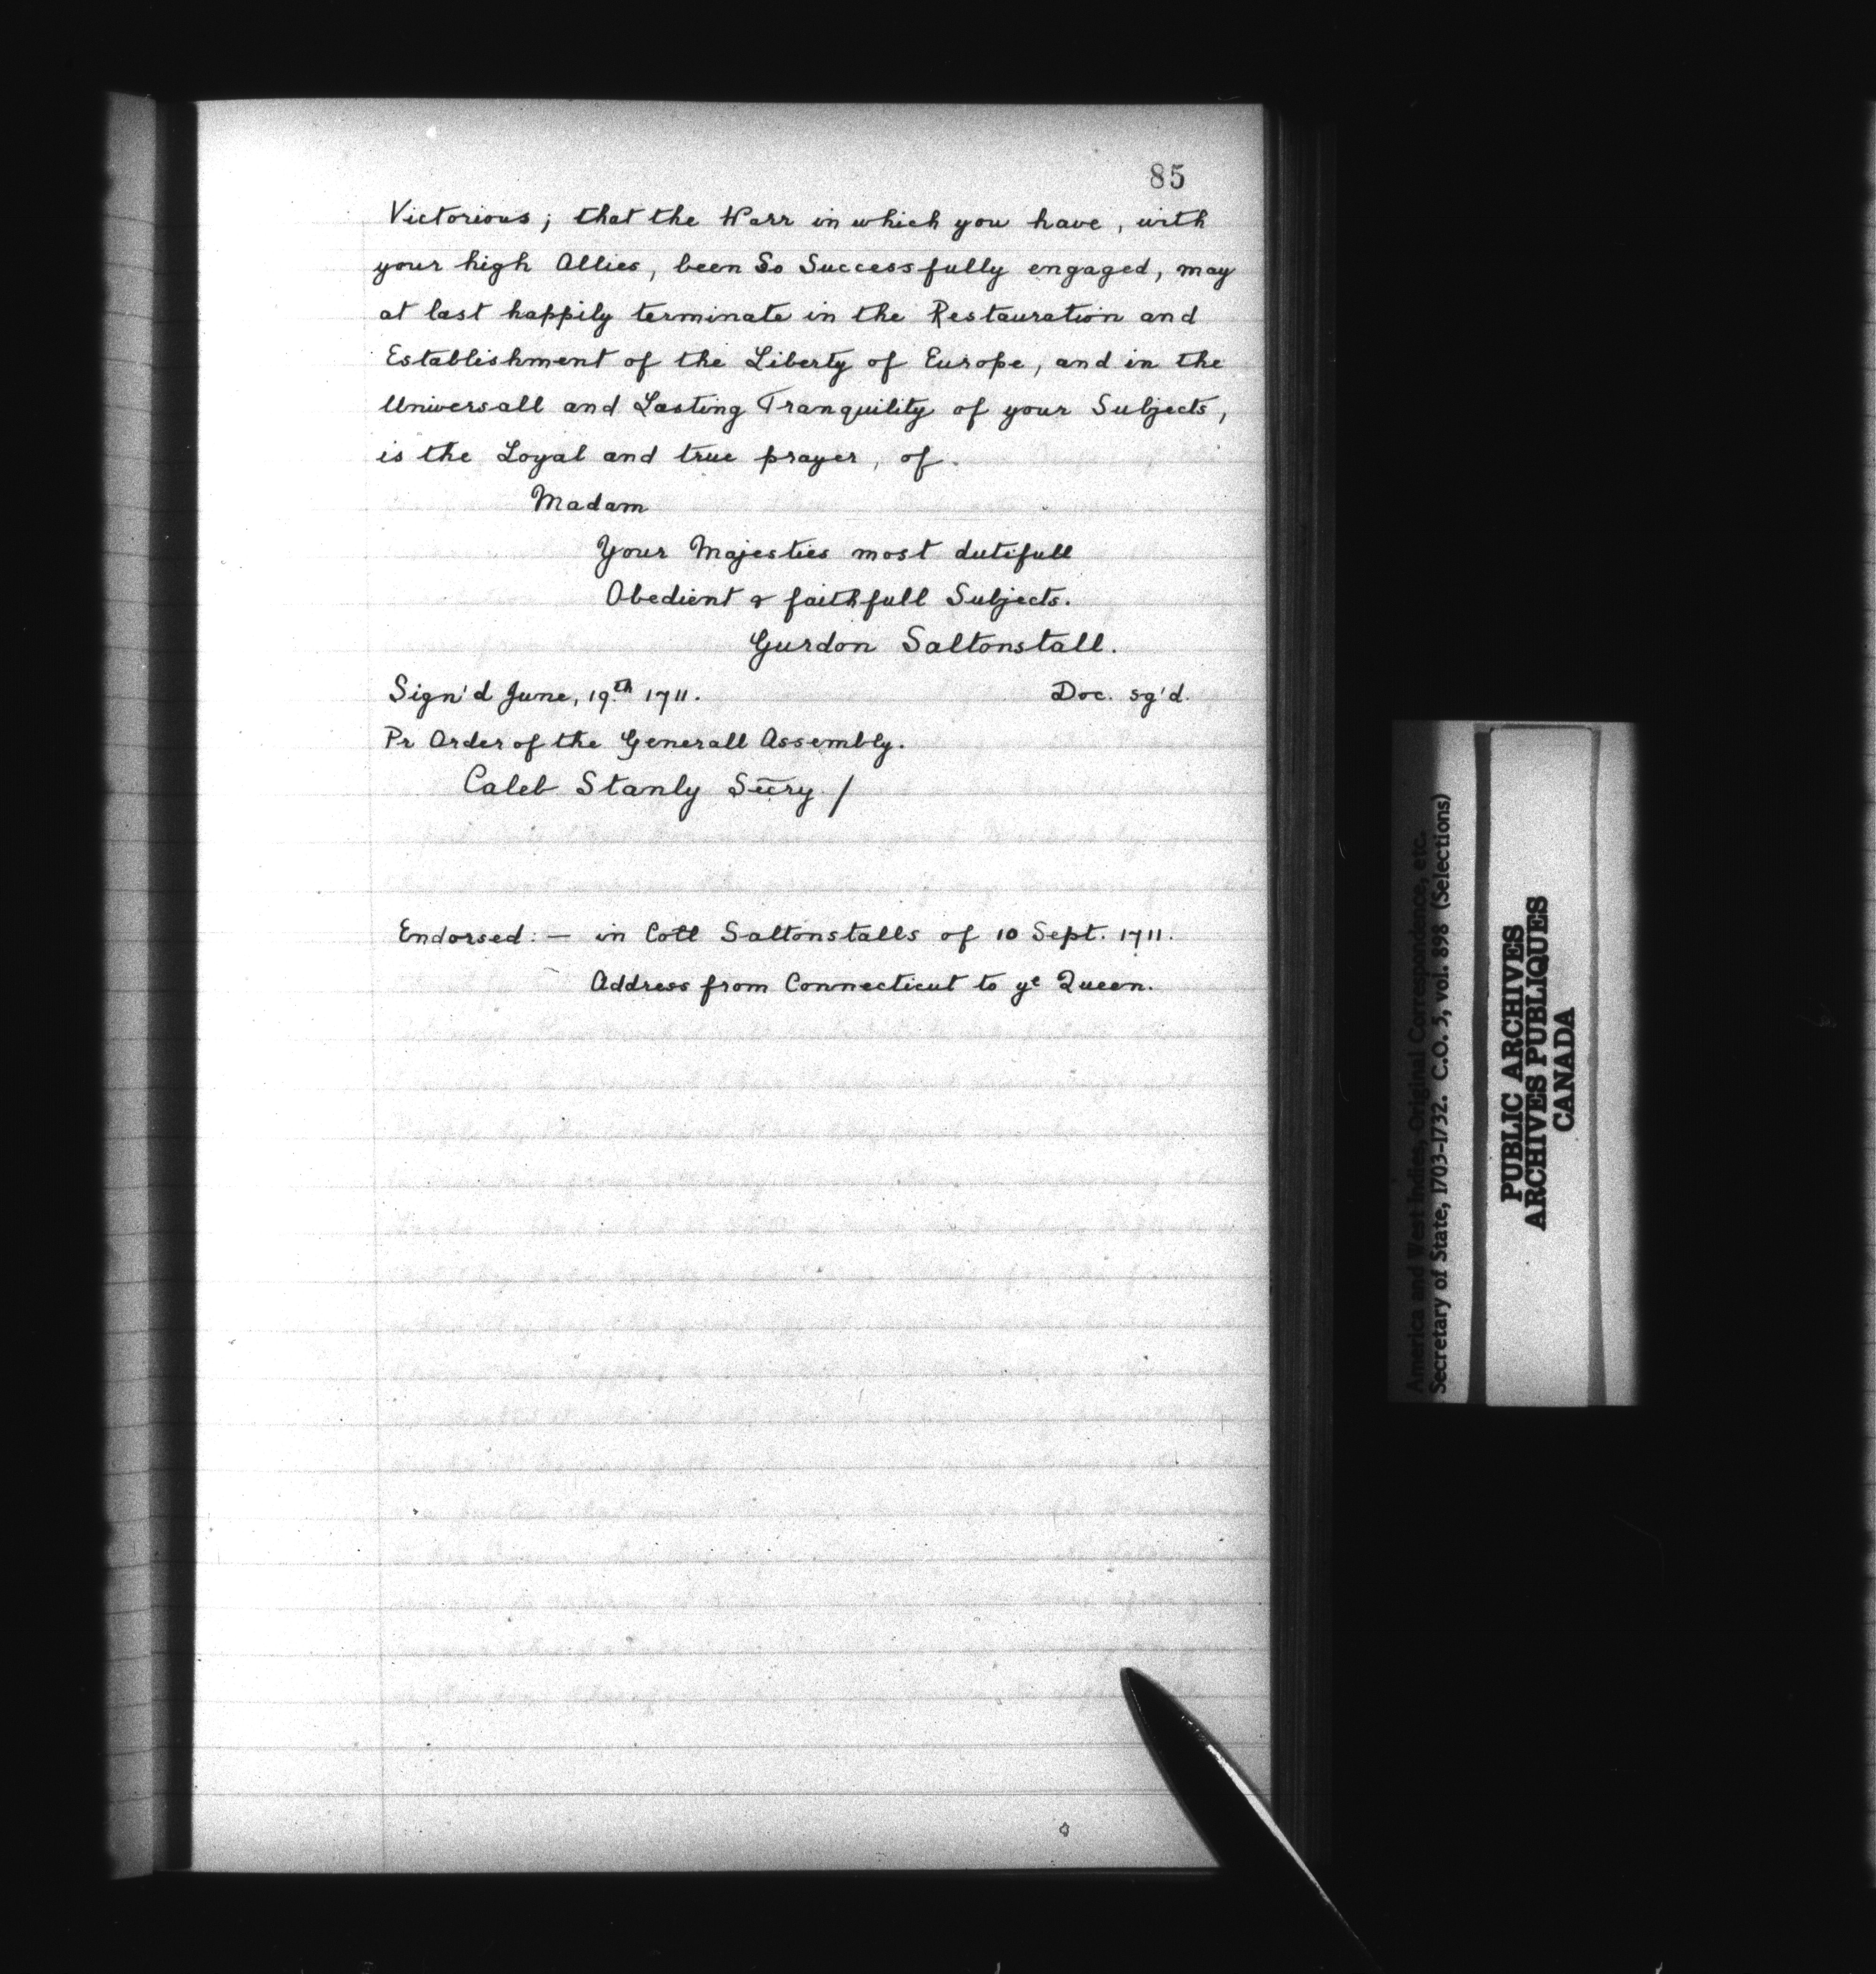 85
Victorious; that the Warr in which you have, with
your high Allies, been So Successfully engaged, may
at last happily terminate in the Restauration and
Establishment of the Liberty of Europe, and in the
Universall and Lasting Tranquility of your Subjects,
is the Loyal and true prayer, of.
Madam
Your Majesties most dutifull
Obedient & faithfull Subjects.
Gurdon Saltonstall.
Sign'd June, 19th 1711. Doc. sg'd.
Pr Order of the Generall Assembly.
Caleb Stanly Secry /
Endorsed: — in Coll Saltonstalls of 10 Sept. 1711.
Address from Connecticut to ye Queen.
America and West Indies, Original Correspondence, etc.
Secretary of State, 1703-1732. C.O. 5, vol. 898 (Selections)
PUBLIC ARCHIVES
ARCHIVES PUBLIQUES
CANADA